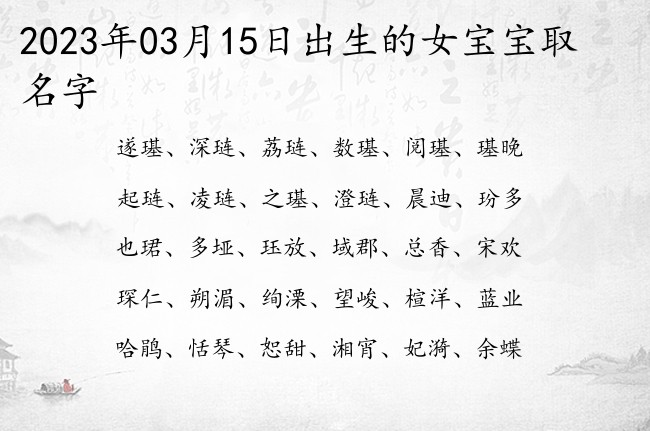 2023年03月15日出生的女宝宝取
名字
遂琎、深琏、荔琏、数琎、阅琎、琎晚
起琏、凌琏、之琎、澄琏、晨迪、玢多
也珺、多垭、珏放、域郡、总香、宋欢
琛仁、朔湄、绚溧、望峻、楦洋、蓝业
哈鹃、恬琴、恕甜、湘宵、妃漪、余蝶